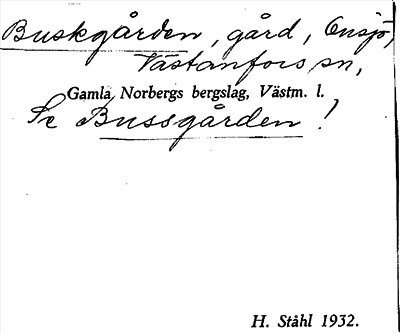 Buskgården, gård, Onsjö,
Västanfors sn,
Gamla Norbergs bergslag, Västm. l.
Se Bussgården!
H. Ståhl 1932.